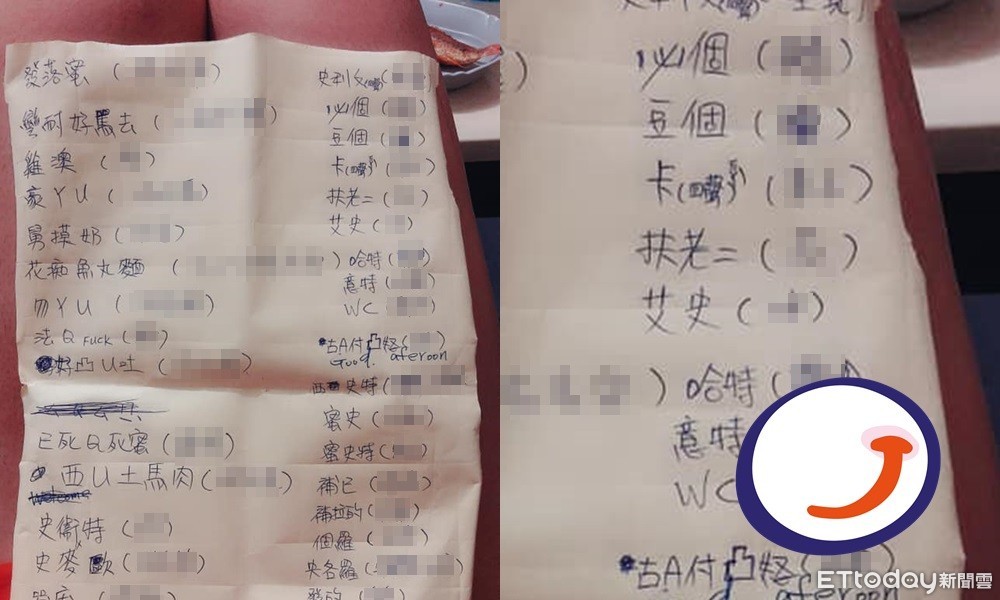 發落蜜 (
蠻耐好罵去 (
雞澳 ( )
豪ㄚU ( )
舅摸奶 ( )
花痴魚丸麵 ( )
勿ㄚU ( )
法Q FUCK ( )
好凸U吐 ( )
E死Q死蜜 ( )
西U土馬肉 ( )
welcome
史衛特 ( )
史麥歐 ( )
必個 ( )
豆個 ( )
卡(四聲) ( )
扶老二 ( )
艾史 ( )
哈特 ( )
意特 ( )
WC ( )
古A付凸怒 ( )
Good. aferoon
西史特 (
蜜史 ( )
蜜史特 ( )
補已 ( )
補拉的 ( )
個羅 ( )
央名羅 ( )
必個 ( )
豆個 ( )
卡(四聲) ( )
扶老二 ( )
艾史 ( )
) 哈特 (
意特
WC
古A付凸怒 (
aferoon
ETtoday新聞雲